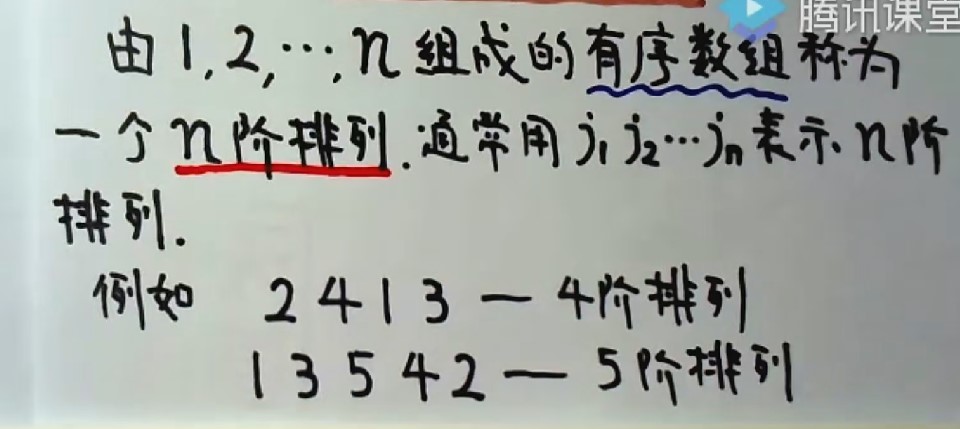 腾讯课堂
由1,2,…,n组成的有序数组称为
一个n阶排列.通常用j₁j₂…jₙ表示n阶
排列.
例如 2 4 1 3 — 4阶排列
1 3 5 4 2 — 5阶排列